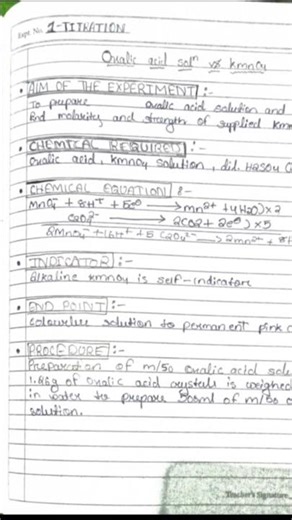 Expt. No. 1-TITRATION
Oxalic acid solⁿ vs kmnO₄
• AIM OF THE EXPERIMENT :-
To prepare oxalic acid solution and
find molarity and strength of supplied kmn
• CHEMICAL REQUIRED :-
Oxalic acid, kmnO₄ solution, dil. H2SO4 (
• CHEMICAL EQUATION :-
MnO₄⁻ + 8H⁺ + 5e⊖ → mn²⁺ + 4H2O) × 2
C2O4²⁻ → 2CO2 + 2e⊖) × 5
2MnO₄⁻ + 16H⁺ + 5 C2O4²⁻ → 2mn²⁺ + 8H
• INDICATOR :-
Alkaline kmnO₄ is self-indicator
• END POINT :-
Colourless solution to permanent pink c
• PROCEDURE :-
Preparation of m/50 Oxalic acid solu
of oxalic acid crystals is weighed
in water to prepare 500ml of m/50 o
solution.
Teacher's Signature